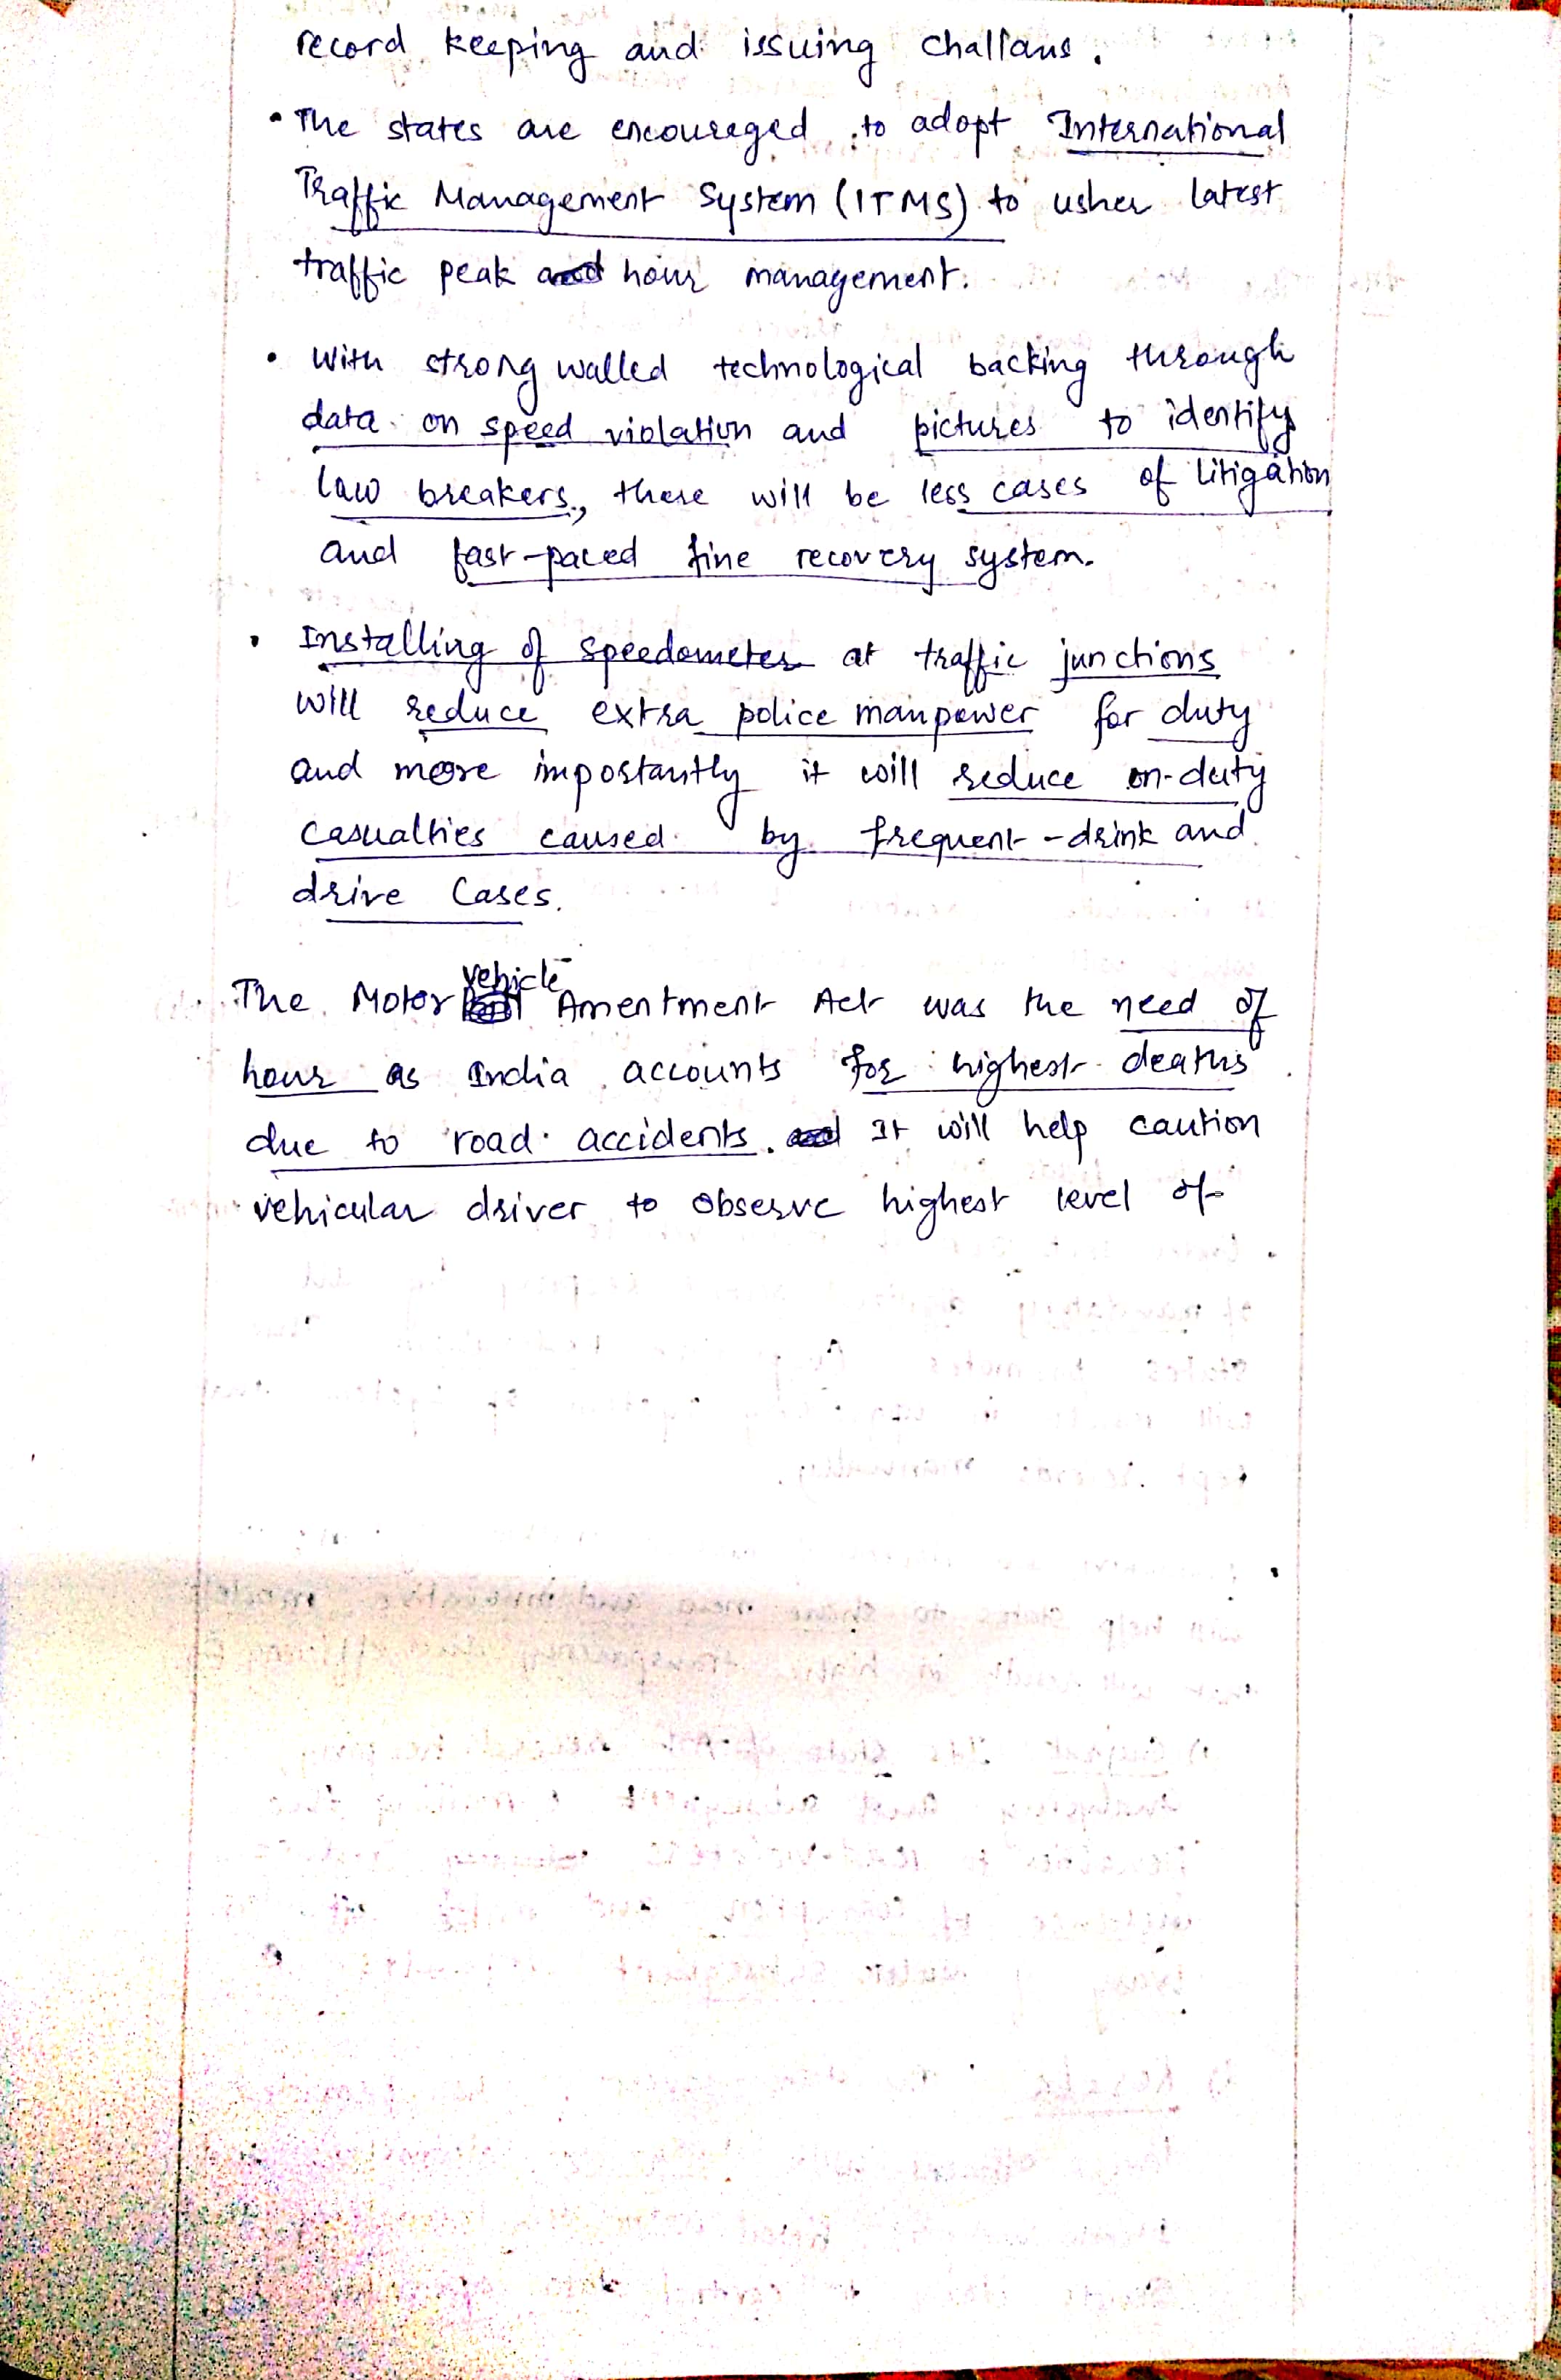 record keeping and issuing challans.
• The states are encouraged to adopt International
Traffic Management System (ITMS) to usher latest
traffic peak hour management.
• With strong walled technological backing through
data on speed violation and pictures to identify
law breakers, there will be less cases of litigation
and fast-paced fine recovery system.
• Installing of speedometer at traffic junctions
will reduce extra police manpower for duty
and more importantly it will reduce on-duty
casualties caused by frequent-drink and
drive cases.
The Motor vehicle Amentment Act was the need of
hour as India accounts for highest deaths
due to road accidents. It will help caution
vehicular driver to observe highest level of